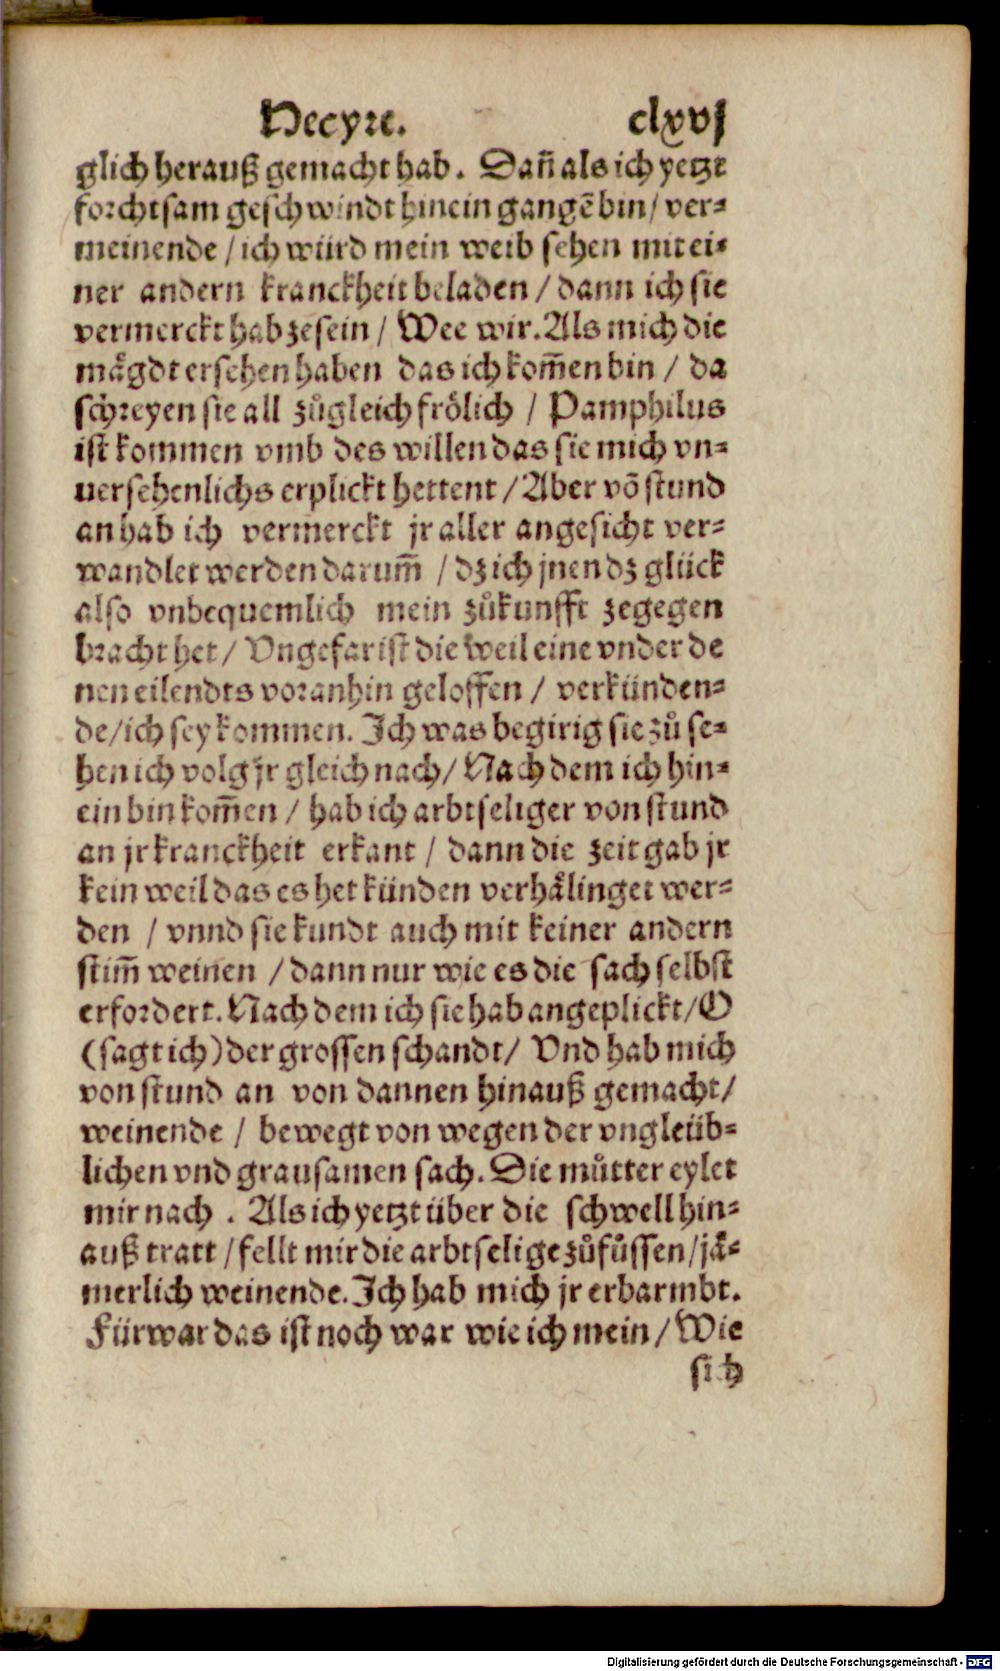 Hecyre. clxvj
glich herauß gemacht hab. Dan̄ als ich yetzt
forchtsam geschwindt hinein gangē bin / ver-
meinende / ich würd mein weib sehen mit ei-
ner andern kranckheit beladen / dann ich sie
vermerckt hab zesein / Wee wir. Als mich die
mågdt ersehen haben das ich kom̄en bin / da
schreyen sie all zůgleich frölich / Pamphilus
ist kommen vmb des willen das sie mich vn-
uersehenlichs erplickt hettent / Aber vō stund
an hab ich vermerckt jr aller angesicht ver-
wandlet werden darum̄ / dz ich jnen dz glück
also vnbequemlich mein zůkunfft zegegen
bracht het / Vngefar ist die weil eine vnder de
nen eilendts voranhin geloffen / verkünden-
de / ich sey kommen. Ich was begirig sie zů se-
hen ich volg jr gleich nach / Nach dem ich hin-
ein bin kom̄en / hab ich arbtseliger von stund
an jr kranckheit erkant / dann die zeit gab jr
kein weil das es het künden verhålinget wer-
den / vnnd sie kundt auch mit keiner andern
stim̄ weinen / dann nur wie es die sach selbst
erfordert. Nach dem ich sie hab angeplickt / O
(sagt ich) der grossen schandt / Vnd hab mich
von stund an von dannen hinauß gemacht /
weinende / bewegt von wegen der vngleüb-
lichen vnd grausamen sach. Die můtter eylet
mir nach . Als ich yetzt über die schwell hin-
auß tratt / fellt mir die arbtselige zůfůssen / jå-
merlich weinende. Ich hab mich jr erbarmbt.
Fürwar das ist noch war wie ich mein / Wie
sich
Digitalisierung gefördert durch die Deutsche Forschungsgemeinschaft - DFG